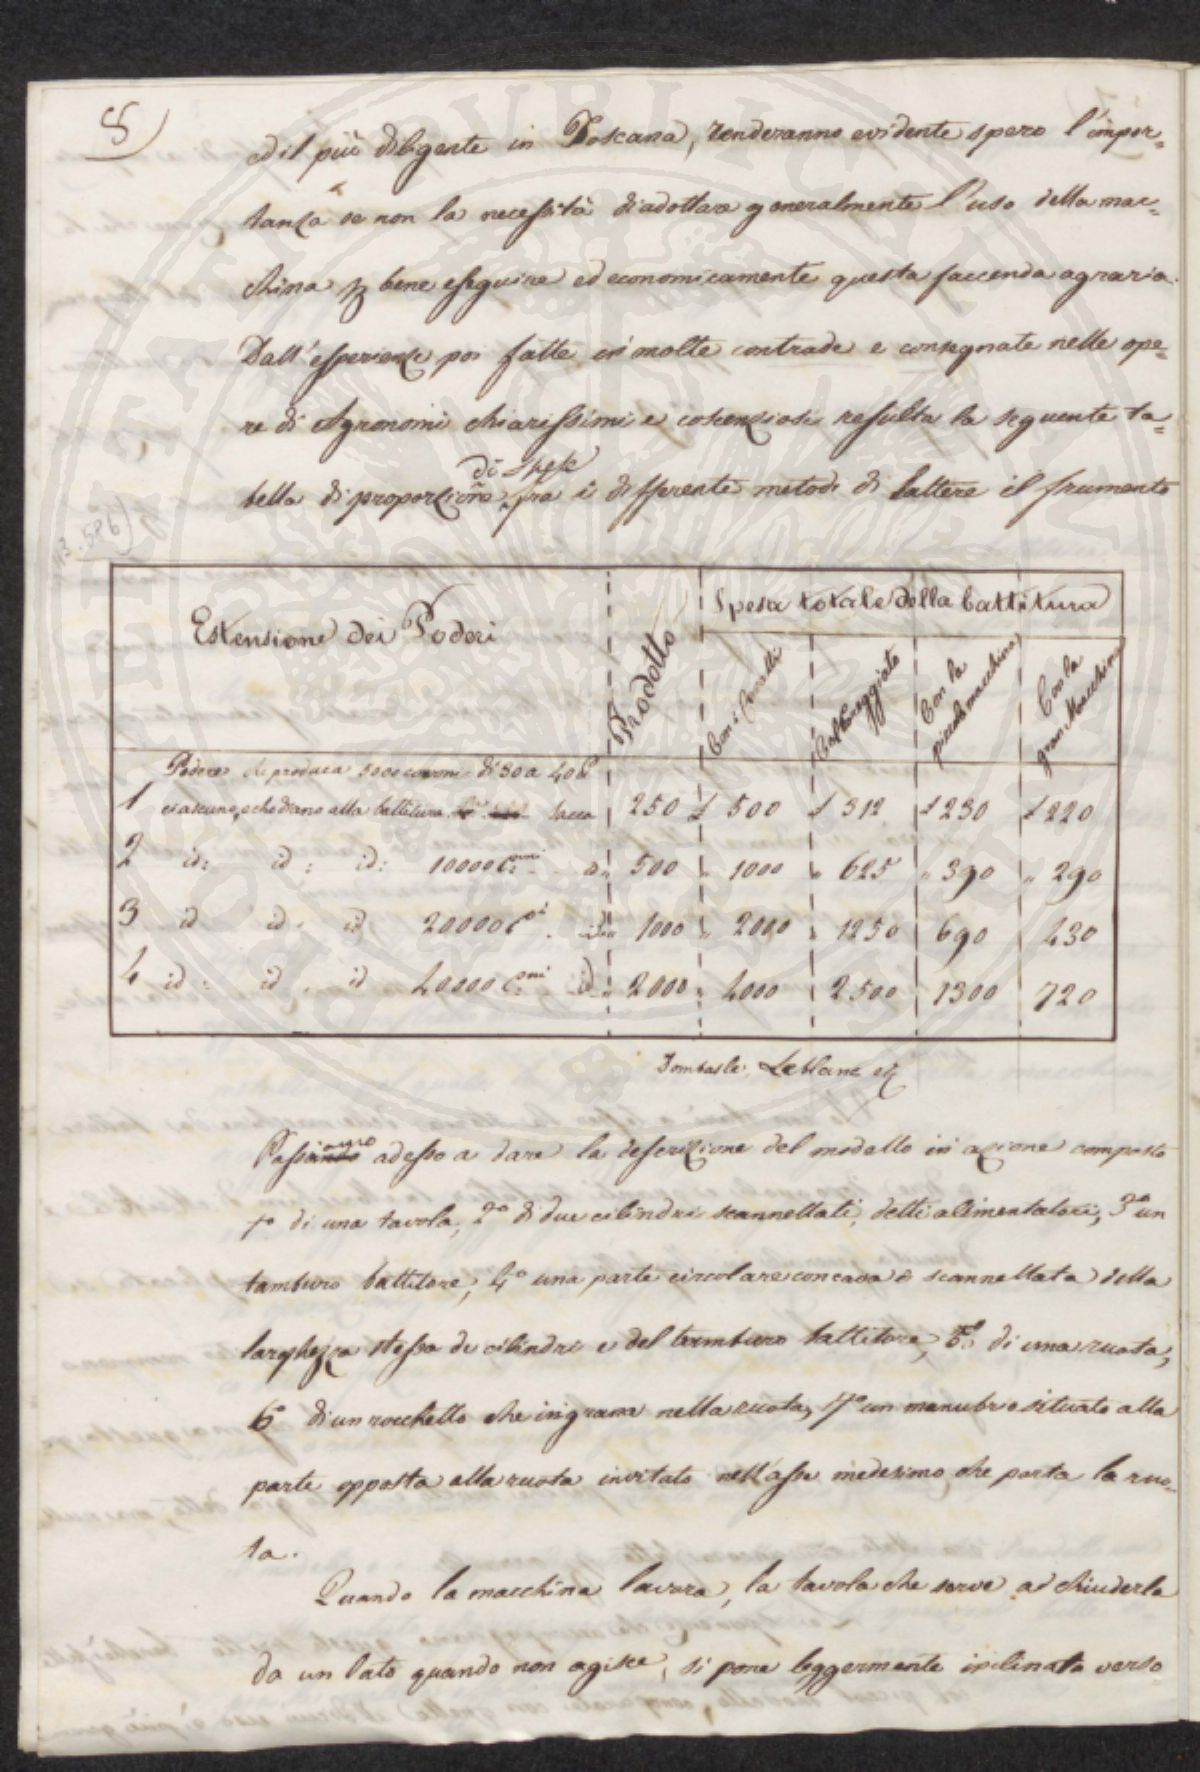 8)
ed il più diligente in Toscana, renderanno evidente spero l'impor=
tanza se non la necessità di adottare generalmente l'uso della mac=
china p bene eseguire ed economicamente questa faccenda agraria.
Dall'esperienze poi fatte in molte contrade e consegnate nelle ope=
re di Agronomi chiarissimi e coscenziosi resulta la seguente ta=
di spese
bella di proporzione fra i differenti metodi di battere il frumento
Estensione dei Poderi
Prodotto
Spesa totale della battitura
Con i Cavalli
Col Coreggiato
Con la piccola macchina
Con la gran Macchina
Podere che produca 5000 covoni di 30 a 40
1 ciascuno, e che diano alla battitura Sacca 250 £ 500 £ 312 £ 230 £ 220
2 id: id: id: 10000 Coni " 500 " 1000 " 625 " 390 " 290
3 id id. id 20000 Coi id " 1000 " 2000 1250 690 430
4 id: id. id 40000 Coni id " 2000 " 4000 2500 1300 720
Dombasle. Leblanc etc
Passiamo adesso a dare la descrizione del modello in azione composto
1º di una tavola, 2º di due cilindri scannellati, detti alimentatori, 3º un
tamburo battitore, 4º una parte circolare concava e scannellata della
larghezza stessa de cilindri e del tamburo battitore, 5º di una ruota,
6º di un rocchetto che ingrana nella ruota, 7º un manubrio situato alla
parte opposta alla ruota invitato nell'asse medesimo che porta la ruo=
ta.
Quando la macchina lavora, la tavola che serve a chiuderla
da un lato quando non agisce, si pone leggermente inclinata verso